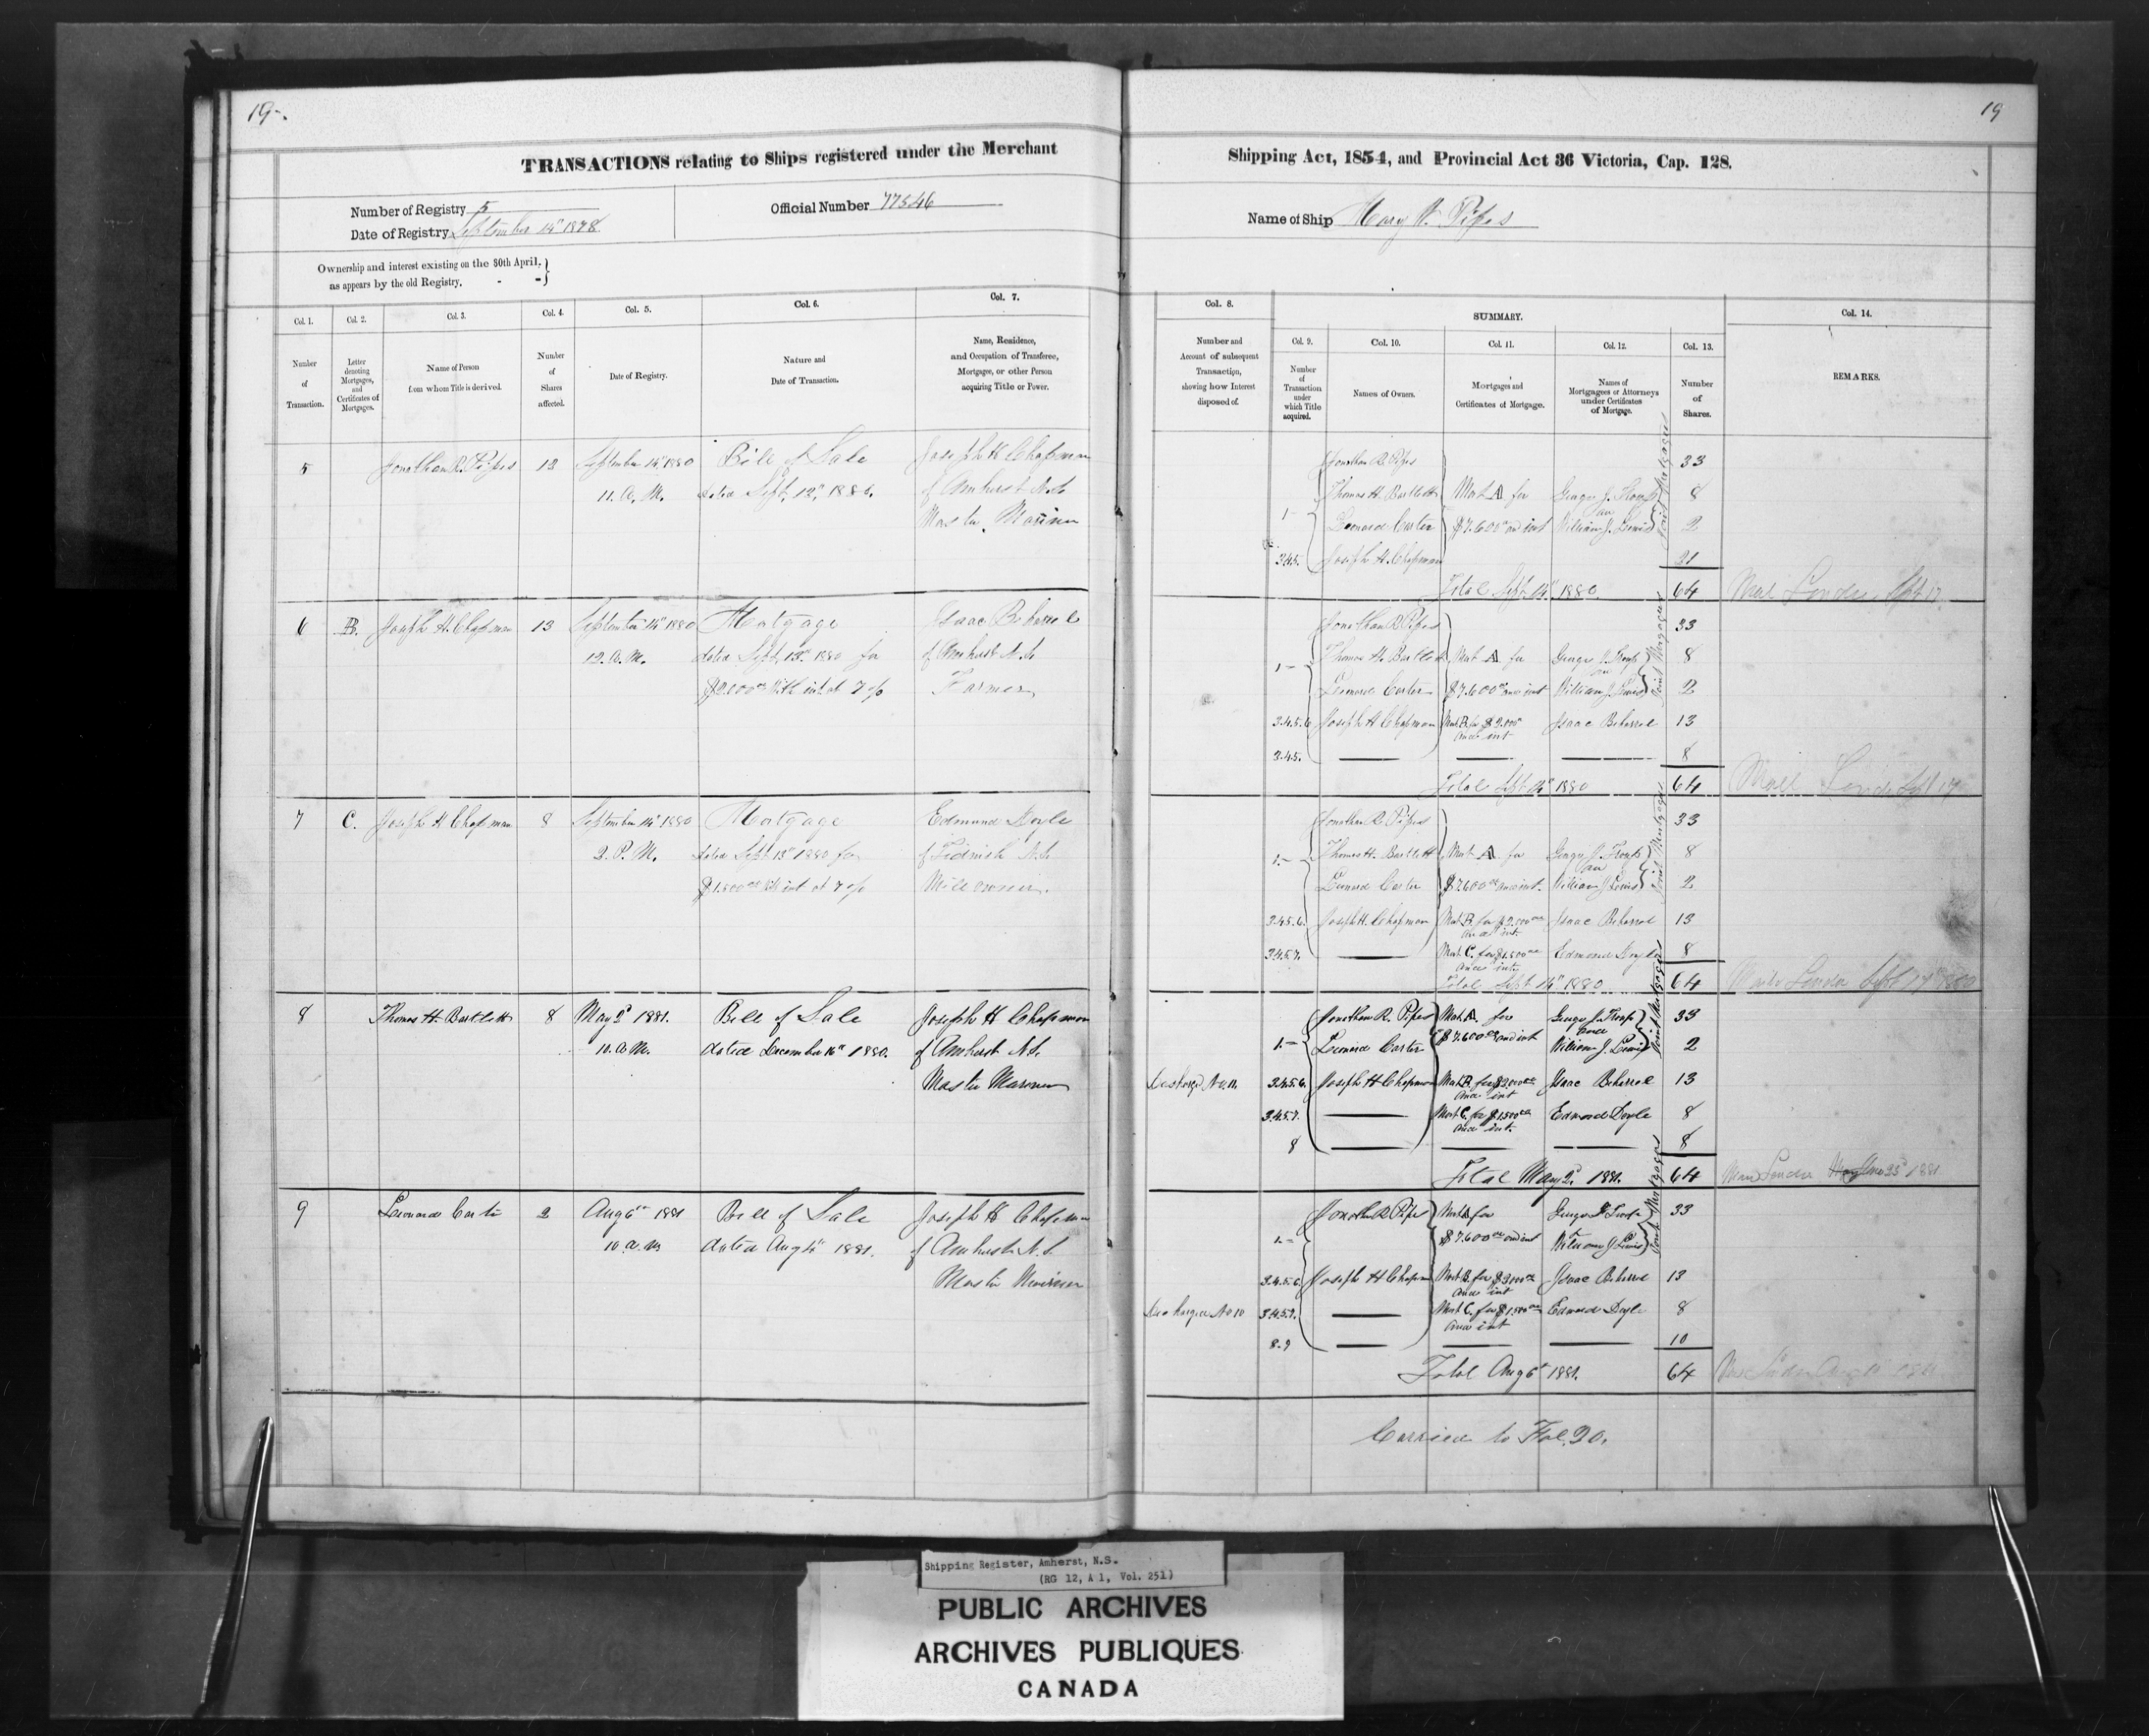 19-.
19
TRANSACTIONS relating to Ships registered under the Merchant
Shipping Act, 1854, and Provincial Act 36 Victoria, Cap. 128.
Number of Registry 5
Date of Registry September 14" 1878
Official Number 77546
Name of Ship Mary Pipes
Ownership and interest existing on the 30th April, }
as appears by the old Registry. - - }
Col. 1. Number of Transaction.
Col. 2. Letter denoting Mortgages, and Certificates of Mortgages.
Col. 3. Name of Person from whom Title is derived.
Col. 4. Number of Shares affected.
Col. 5. Date of Registry.
Col. 6. Nature and Date of Transaction.
Col. 7. Name, Residence, and Occupation of Transferee, Mortgagee, or other Person acquiring Title or Power.
Col. 8. Number and Account of subsequent Transaction, showing how Interest disposed of.
SUMMARY.
Col. 9. Number of Transaction under which Title acquired.
Col. 10. Names of Owners.
Col. 11. Mortgages and Certificates of Mortgage.
Col. 12. Names of Mortgagees or Attorneys under Certificates of Mortgage.
Col. 13. Number of Shares.
Col. 14. REMARKS.
5 Jonathan R. Pipes 12 September 14" 1880 Bill of Sale Joseph H Chapman
11. A. M. dated Sept. 12" 1880. of Amherst N.S.
Master Mariner
Jonathan R. Pipes 33
Thomas H. Bartlett Mort A for George J. 8
1- Leonard Carter $7.600 and int William J. Lewis 2
3.4.5. Joseph H. Chapman 21
Joint Mortgagees
Total Sept. 14" 1880. 64
6 B. Joseph H. Chapman 13 September 14" 1880 Mortgage Isaac
12. A. M. dated Sept. 13" 1880 for of Amherst N.S.
$2.000 with int at 7 % Farmer
Jonathan R Pipes 33
1- Thomas H. Bartlett Mort A for George J. 8
Leonard Carter $7.600 and int William J. Lewis 2
3.4.5.6 Joseph H Chapman Mort B. for $2.000 and int Isaac 13
3.4.5. 8
Joint Mortgagees
Total Sept 14" 1880 64
7 C. Joseph H Chapman 8 September 14" 1880 Mortgage Edmund Doyle
2. P. M. dated Sept 13" 1880 for of Tidnish N.S.
$1.500 with int at 7 % Mill owner.
Jonathan R. Pipes 33
1.- Thomas H. Bartlett Mort A for George J. 8
Leonard Carter $7.600 and int. William J Lewis 2
3.4.5.6. Joseph H. Chapman Mort. B. for and int Isaac 13
3.4.5.7. Mort. C. for $1.500 and int Edmond Doyle 8
Total Sept 14" 1880 64
8 Thomas H. Bartlett 8 May 2" 1881. Bill of Sale Joseph H Chapman
10. A. M. dated December 16" 1880. of Amherst N.S.
Master Mariner
Jonathan R. Pipes Mort. A. for George J. 33
1.- Leonard Carter $7.600 and int William J. Lewis 2
Discharged No 11. 3.4.5.6. Joseph H Chapman Mort. B. for $2.000 and int Isaac 13
3.4.5.7. Mort C. for $1.500 and int. Edmond Doyle 8
8 8
Joint Mortgagees
Total May 2" 1881. 64
9 Leonard Carter 2 Aug 6" 1881 Bill of Sale Joseph H Chapman
10. a. m dated Aug 4" 1881. of Amherst N.S.
Master Mariner
Jonathan R Pipes Mort A for George J 33
1.- $7.600 and int William J Lewis
3.4.5.6. Joseph H Chapman Mort B. for $2000 and int Isaac 13
Discharged No 10 3.4.5.7. Mort. C. for $1.500 and int Edmond Doyle 8
8.9 10
Joint Mortgagees
Total Aug 6" 1881. 64
Carried to Fol. 20.
Shipping Register, Amherst, N.S.
(RG 12, A 1, Vol. 251)
PUBLIC ARCHIVES
ARCHIVES PUBLIQUES
CANADA